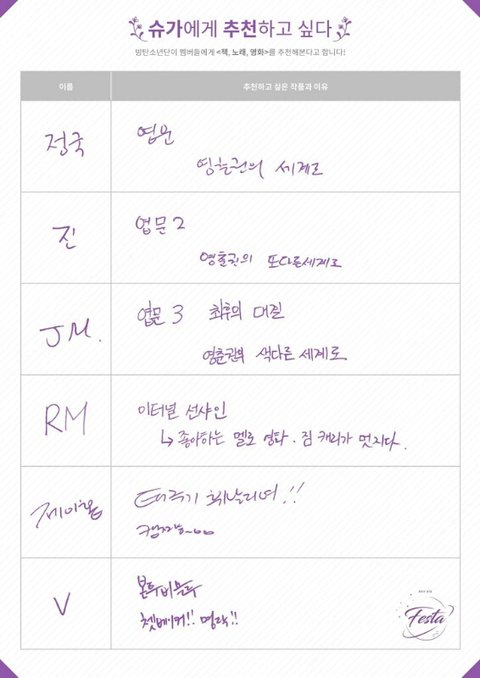 슈가에게 추천하고 싶다
방탄소년단이 멤버들에게 <책, 노래, 영화>를 추천해본다고 합니다!
이름
추천하고 싶은 작품과 이유
정국
엽문
영춘권의 세계로
진
엽문 2
영춘권의 또다른 세계로
JM.
엽문 3 최후의 대결
영춘권의 색다른 세계로
RM
이터널 선샤인
↳ 좋아하는 멜로 영화. 짐 캐리가 멋지다.
제이홉
태극기 휘날리며!!
V
본투비블루
쳇베이커!! 명작!!
Festa